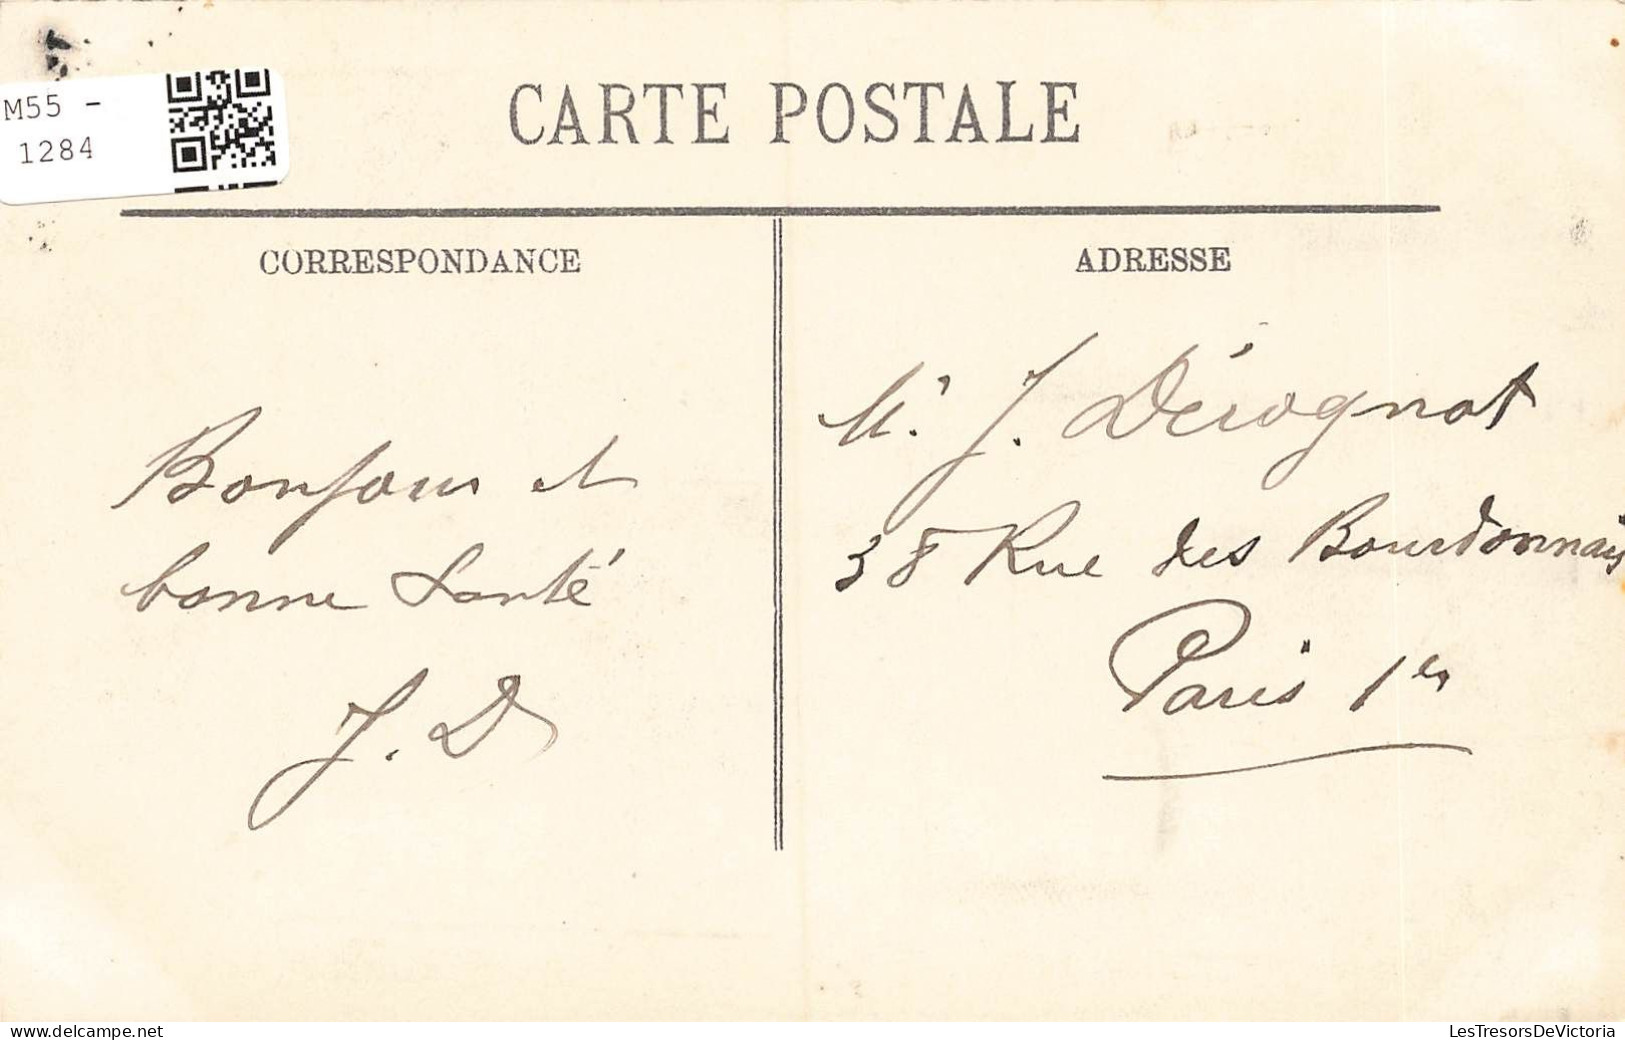 M55 -
1284
CARTE POSTALE
CORRESPONDANCE
ADRESSE
Bonjour et
bonne Santé
J. D
Mr. J. Dérognat
38 Rue des Bourdonnais
Paris 1er
delcampe.net
LesTresorsDeVictoria